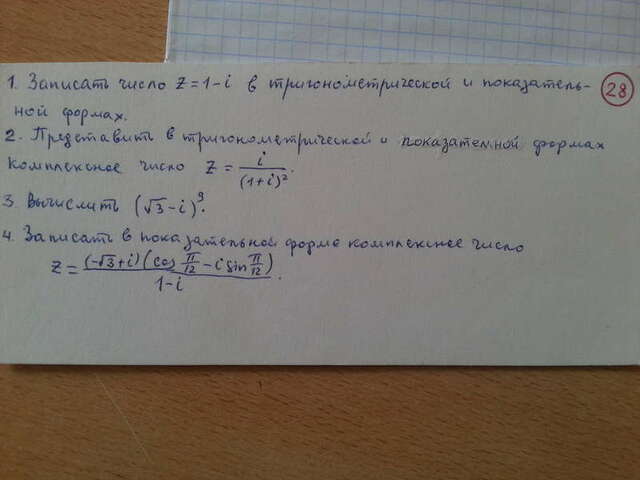 1. Записать число z=1-i в тригонометрической и показатель-
ной формах.
28
2. Представить в тригонометрической и показательной формах
комплексное число z = i/(1+i)².
3. Вычислить (√3-i)⁹.
4. Записать в показательной форме комплексное число
z = (-√3+i)(cos π/12 - i sin π/12)/(1-i).